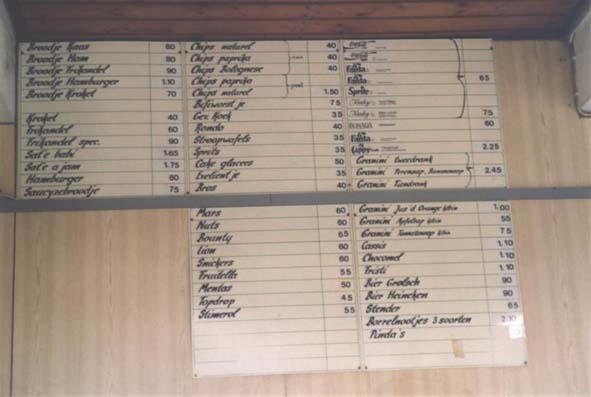 Broodje Kaas 80
Broodje Ham 80
Broodje Frikandel 90
Broodje Hamburger 1.10
Broodje Kroket 70
Kroket 40
Frikandel 60
Frikandel spec. 90
Saté babi 1.65
Saté ajam 1.75
Hamburger 80
Saucyzebroodje 75
Chips naturel 40
Chips paprika 40
Chips Bolognese 40
Chips paprika
Chips naturel 1.50
Bifiworstje 75
Gev. Koek 35
Rondo 40
Stroopwafels 35
Sprits 35
Cake glaceers 50
Evelientje 35
Bros 40
Fanta
Sprite
65
75
60
Fanta
Cappy 2.25
Granini tweedrank
Granini
Granini Tiendrank
2.45
Mars 60
Nuts 60
Bounty 65
Lion 60
Snickers 60
Fruitella 55
Mentos 50
Topdrop 45
Stimerol 55
Granini Jus'd Orange klein 1.00
Granini Appelsap klein 55
Granini Tomatensap klein 75
Cassis 1.10
Chocomel 1.10
Fristi 1.10
Bier Grolsch 90
Bier Heineken 90
Stender 65
Borrelnootjes 3 soorten 2.10
Pinda's